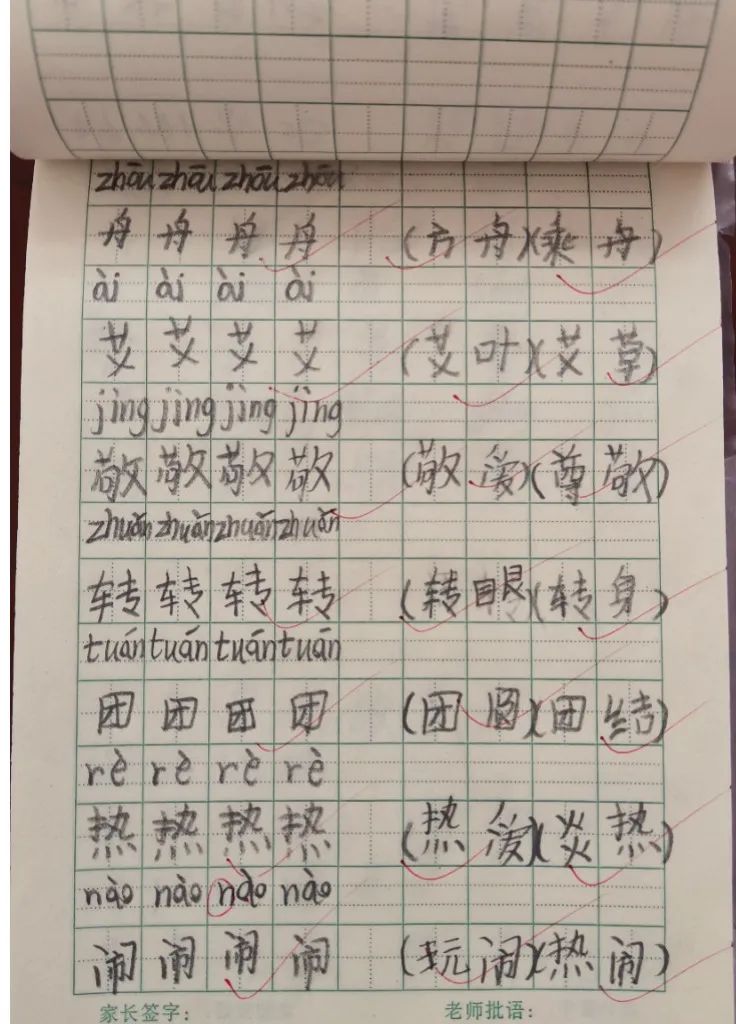 zhōu zhōu zhōu zhōu
舟 舟 舟 舟 (方舟)(乘舟)
ài ài ài ài
艾 艾 艾 艾 (艾叶)(艾草)
jìng jìng jìng jìng
敬 敬 敬 敬 (敬爱)(尊敬)
zhuǎn zhuàn zhuǎn zhuǎn
转 转 转 转 (转眼)(转身)
tuán tuán tuán tuán
团 团 团 团 (团圆)(团结)
rè rè rè rè
热 热 热 热 (热爱)(炎热)
nào nào nào nào
闹 闹 闹 闹 (玩闹)(热闹)
家长签字: 老师批语: